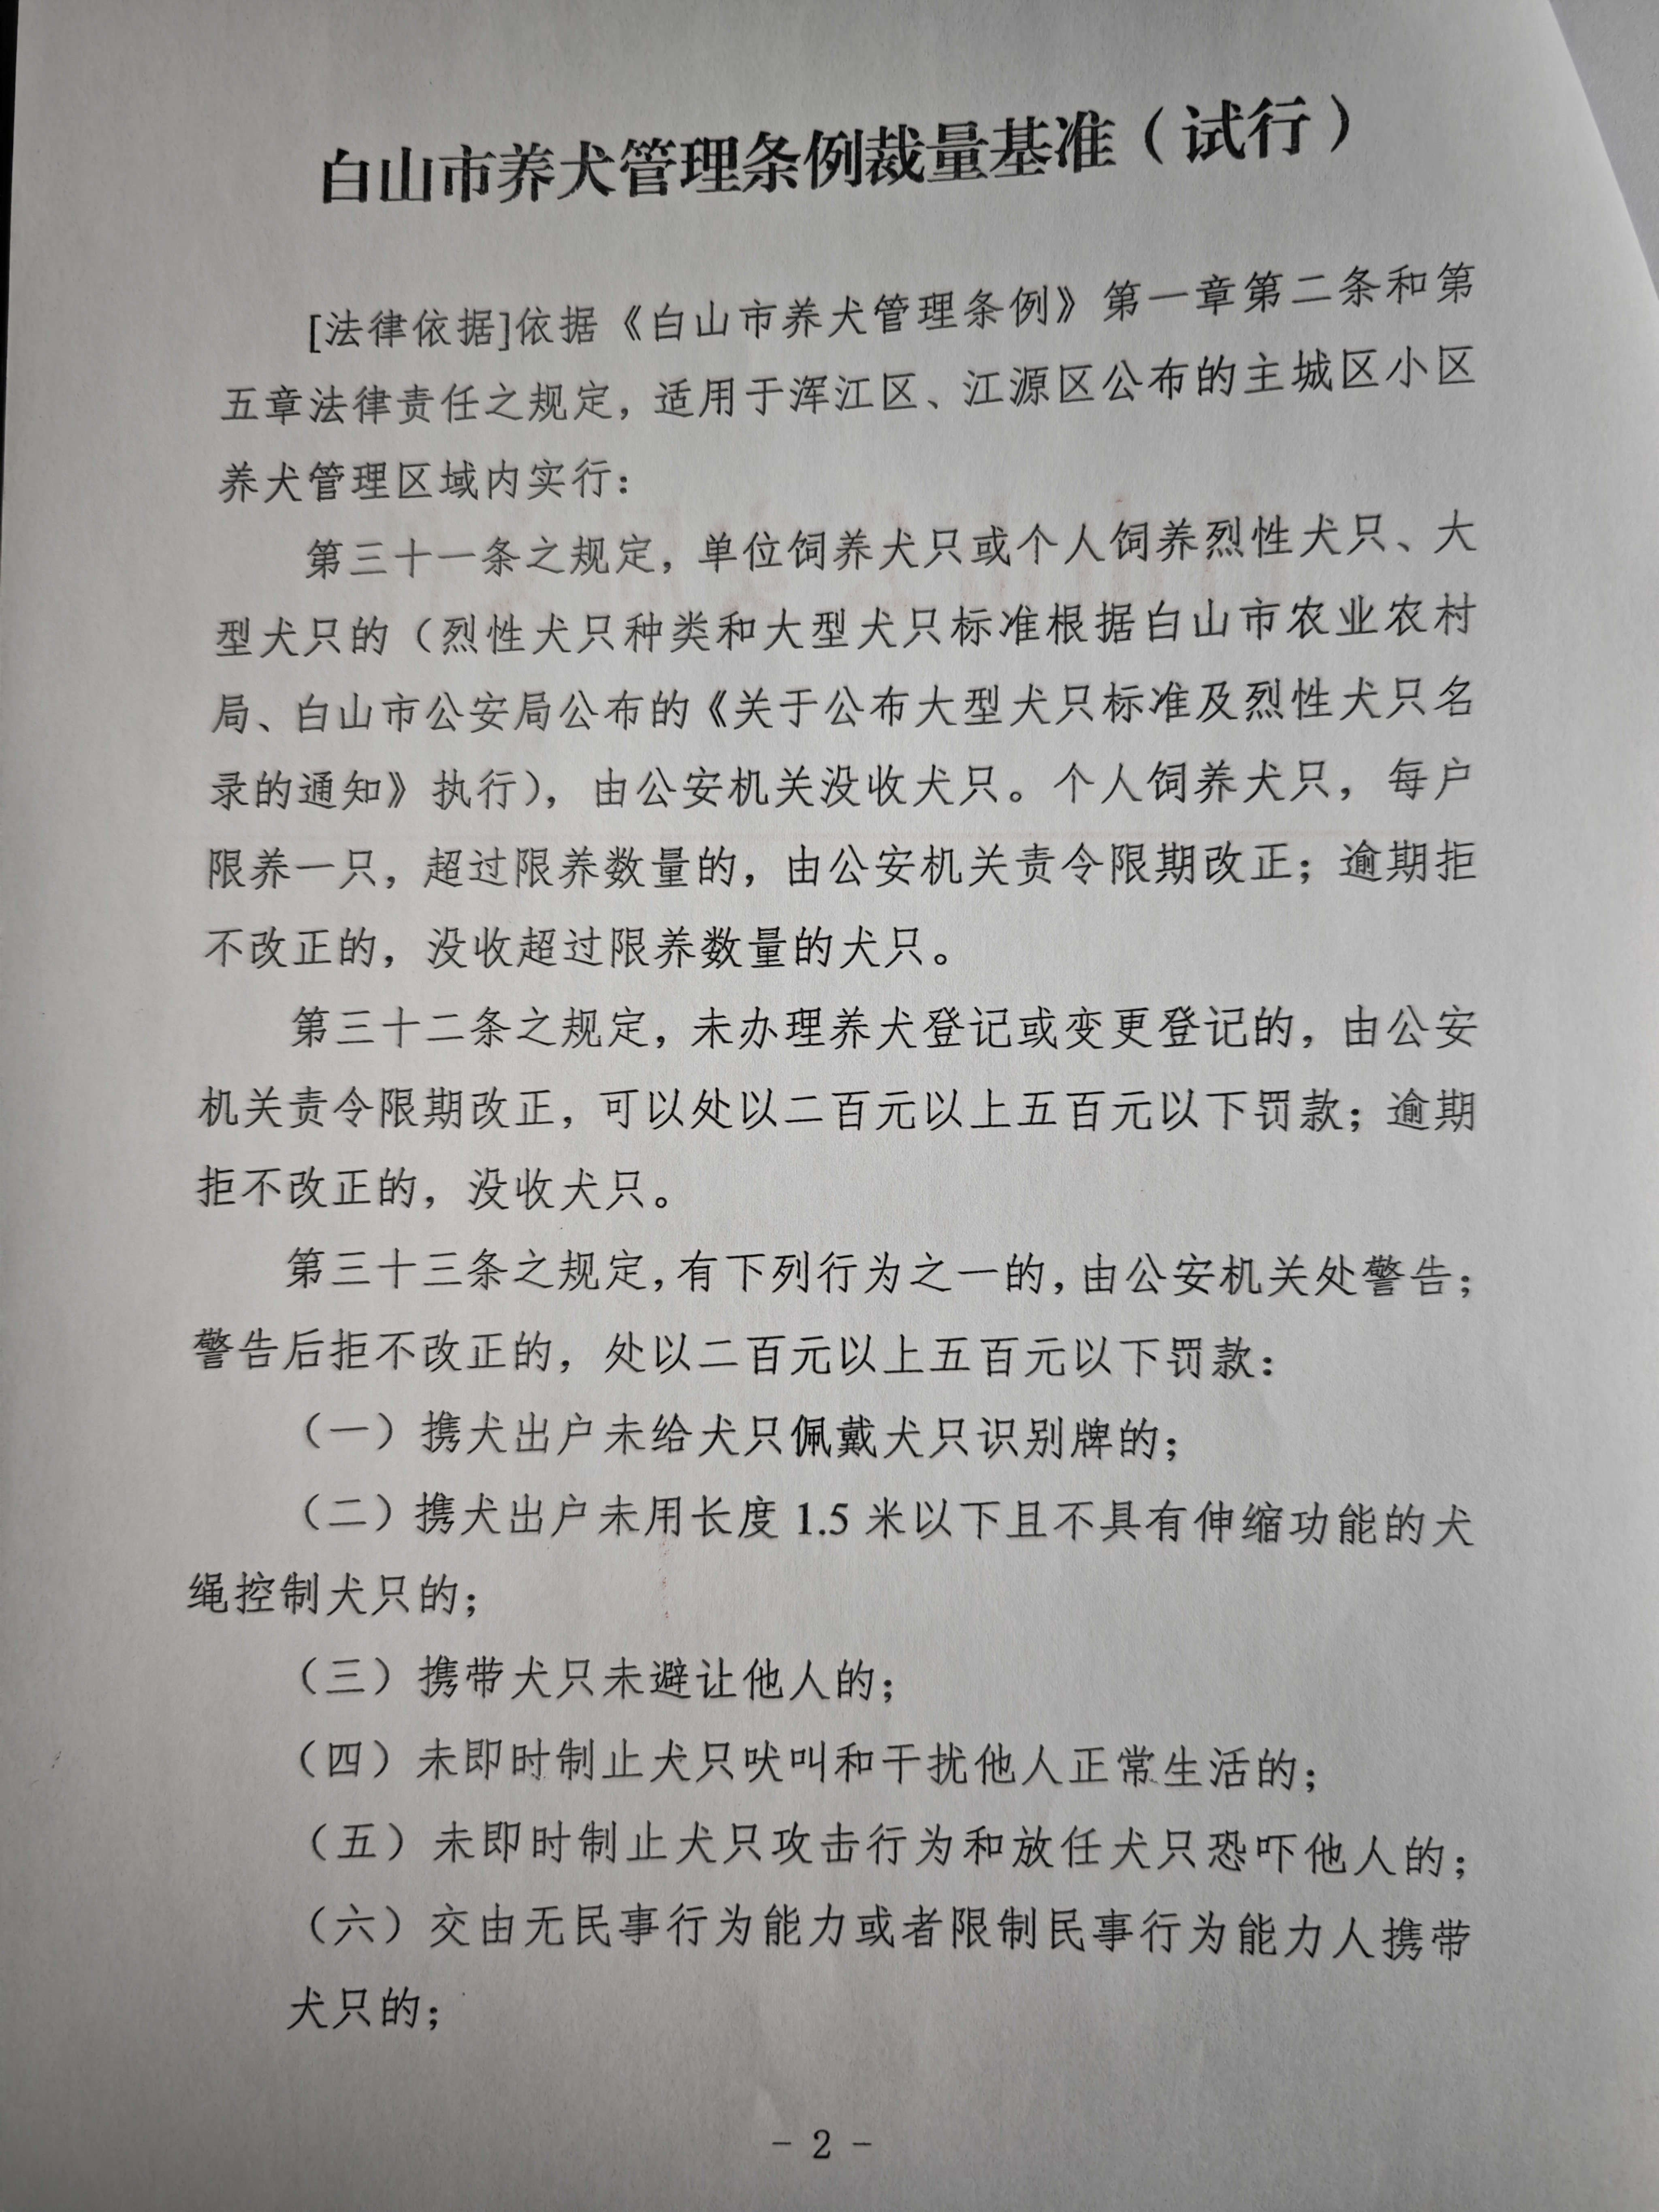 白山市养犬管理条例裁量基准（试行）
[法律依据]依据《白山市养犬管理条例》第一章第二条和第
五章法律责任之规定，适用于浑江区、江源区公布的主城区小区
养犬管理区域内实行：
第三十一条之规定，单位饲养犬只或个人饲养烈性犬只、大
型犬只的（烈性犬只种类和大型犬只标准根据白山市农业农村
局、白山市公安局公布的《关于公布大型犬只标准及烈性犬只名
录的通知》执行），由公安机关没收犬只。个人饲养犬只，每户
限养一只，超过限养数量的，由公安机关责令限期改正；逾期拒
不改正的，没收超过限养数量的犬只。
第三十二条之规定，未办理养犬登记或变更登记的，由公安
机关责令限期改正，可以处以二百元以上五百元以下罚款；逾期
拒不改正的，没收犬只。
第三十三条之规定，有下列行为之一的，由公安机关处警告；
警告后拒不改正的，处以二百元以上五百元以下罚款：
（一）携犬出户未给犬只佩戴犬只识别牌的；
（二）携犬出户未用长度 1.5 米以下且不具有伸缩功能的犬
绳控制犬只的；
（三）携带犬只未避让他人的；
（四）未即时制止犬只吠叫和干扰他人正常生活的；
（五）未即时制止犬只攻击行为和放任犬只恐吓他人的；
（六）交由无民事行为能力或者限制民事行为能力人携带
犬只的；
- 2 -